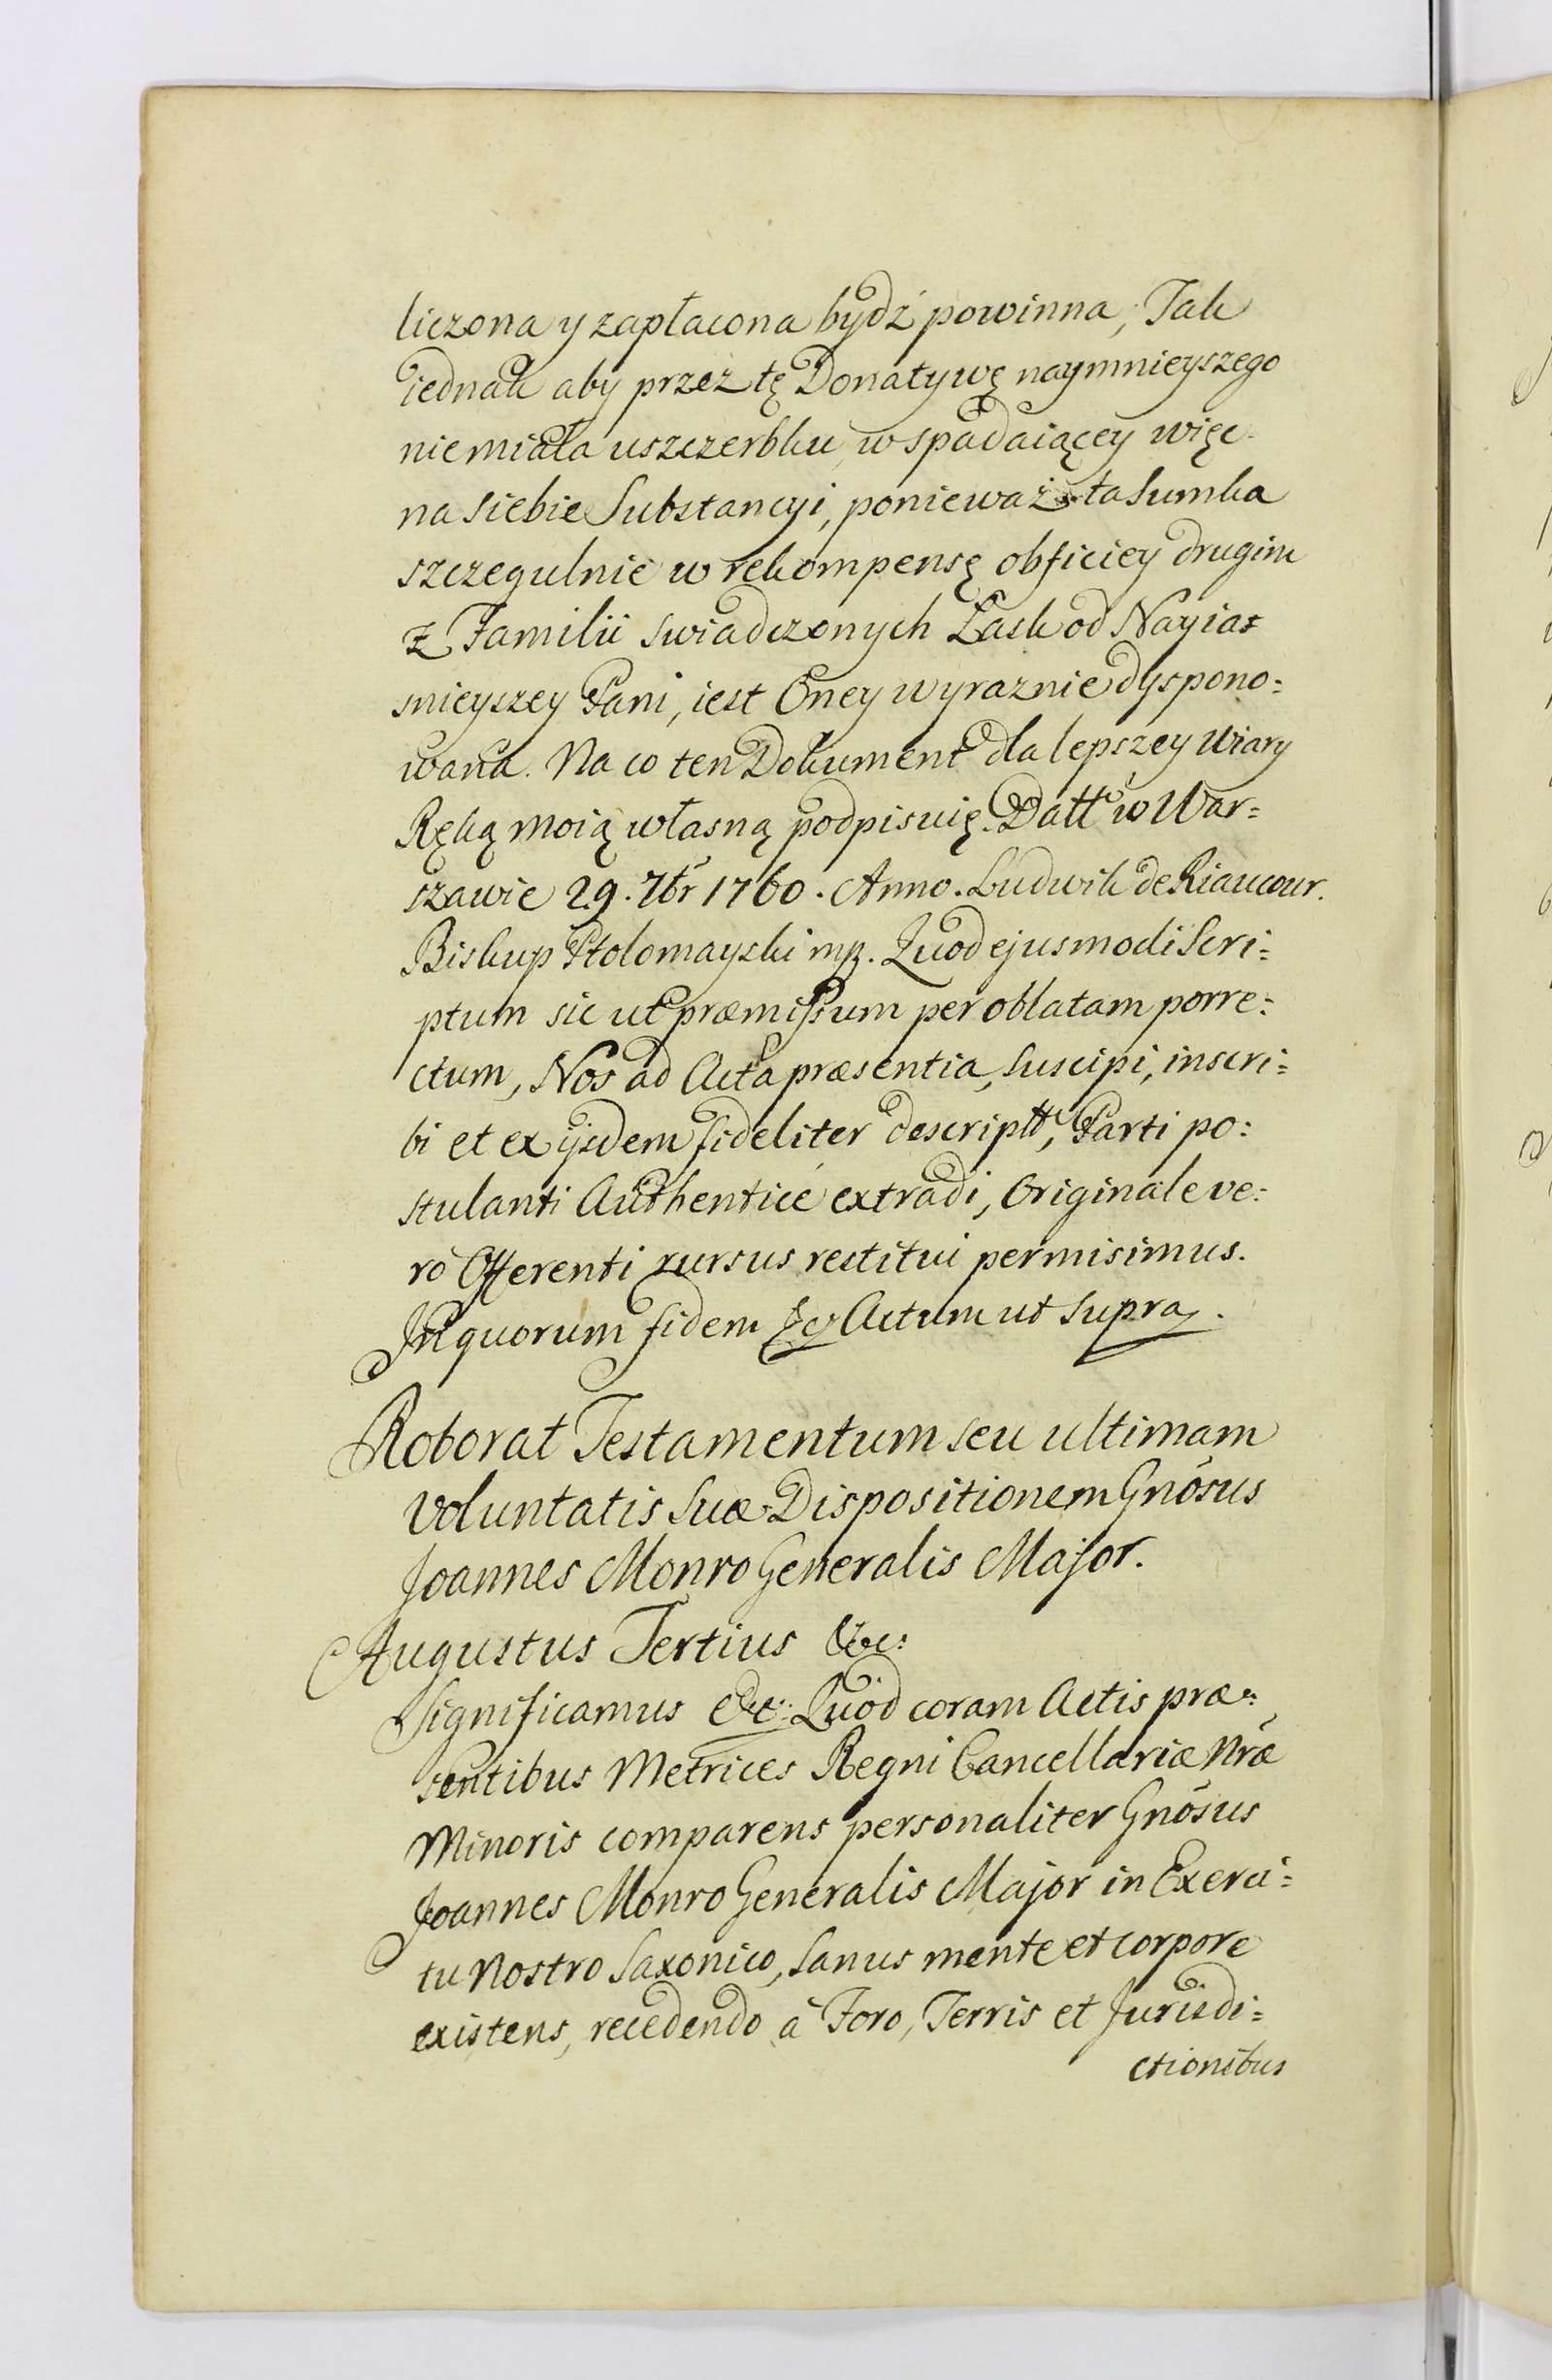 liczona y zapłacona bydź powinna, Tak
iednak aby przez tę Donatywę naymnieyszego
nie miała uszczerbku, w spadaiącey więc
na siebie Substancyi, ponieważ ta sumka
szczegulnie w rekompensę obficiey drugim
z Familii swiadczonych Łask od Nayia=
snieyszey Pani, iest Oney wyraznie dyspono=
wana. Na co ten Dokument dla lepszey Wiary
Ręką moią własną podpisuię. Datt w War=
szawie 29. 7br 1760. Anno. Ludwik de Riaucour.
Biskup Ptolomayski mp. Quod ejusmodi Scri=
ptum sic ut præmissum per oblatam porre=
ctum, Nos ad Acta præsentia, suscipi, inscri=
bi et ex ijsdem fideliter descriptt, Parti po=
stulanti Authenticé extradi, Originale ve=
rò Offerenti rursus restitui permisimus.
In quorum fidem &c Actum ut supra.
Roborat Testamentum seu ultimam
Voluntatis Suæ Dispositionem Gnosus
Joannes Monro Generalis Major.
Augustus Tertius &c:
Significamus &c: Quod coram Actis præ=
sentibus Metrices Regni Cancellariæ Nræ
Minoris comparens personaliter Gnosus
Joannes Monro Generalis Major in Exerci=
tu Nostro Saxonico, Sanus mente et corpore
existens, recedendo à Foro, Terris et Jurisdi=
ctionibus